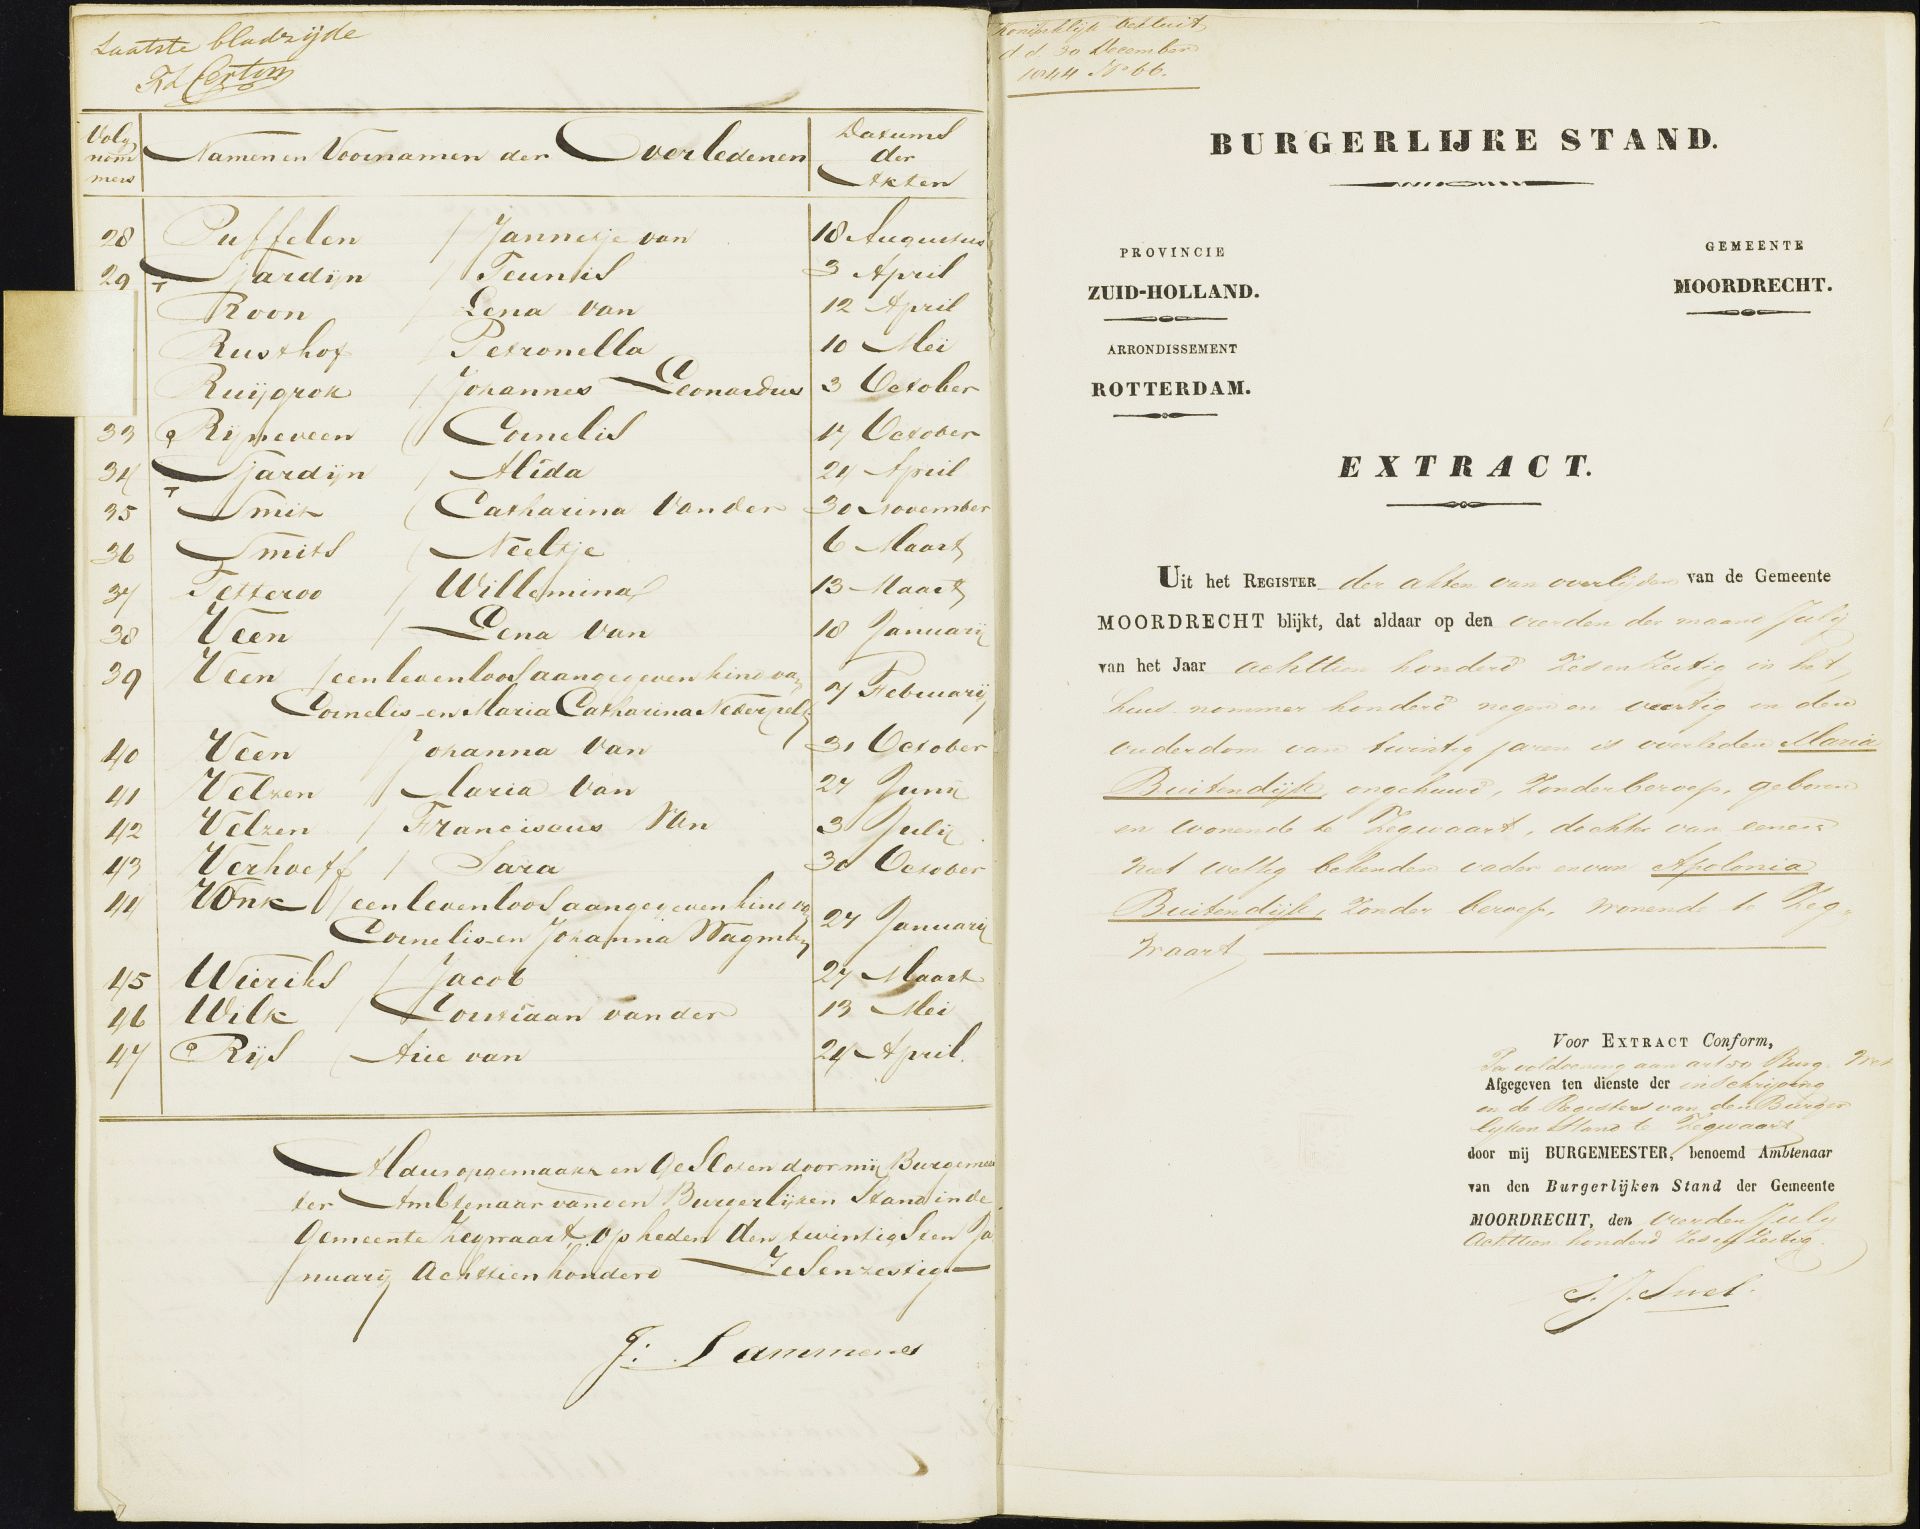 Laatste bladzijde
Volg
nom
mers
Namen en Voornamen der Overledenen
Datums
der
Akten
28 Puffelen / Jannetje van 18 Augustus
29 Sjardijn / Teunis 3 April
Roon / Lena van 12 April
Rusthof / Petronella 10 Mei
Ruijgrok / Johannes Leonardus 3 October
33 Rijneveen / Cornelis 17 October
34 Sjardijn / Alida 24 April
35 Smit / Catharina van der 30 November
36 Smits / Neeltje 6 Maart
37 Tetteroo / Willemina 13 Maart
38 Veen / Lena van 18 Januarij
39 Veen / een levenloos aangegeven kind van
Cornelis en Maria Catharina 7 Februarij
40 Veen / Johanna van 31 October
41 Velzen / Maria van 27 Junij
42 Velzen / Franciscus van 3 Julij
43 Verhoeff / Sara 30 October
44 Vonk / een levenloos aangegeven kind van
Cornelis en Johanna Wagm 27 Januarij
45 Wieriks / Jacob 27 Maart
46 Wilk / Courtiaan van der 13 Mei
47 Rijs / Arie van 24 April.
Aldus opgemaakt en Gesloten door mij Burgemees
ter Ambtenaar van den Burgerlijken Stand in de
Gemeente Zegwaart, op heden den twintigsten Ja
nuarij Achttienhonderd Zesenzestig
J. Sammenes
Koninklijk besluit
d.d. 30 December
1844 No 66.
BURGERLIJKE STAND.
PROVINCIE
ZUID-HOLLAND.
GEMEENTE
MOORDRECHT.
ARRONDISSEMENT
ROTTERDAM.
EXTRACT.
Uit het REGISTER der akten van overlijden van de Gemeente
MOORDRECHT blijkt, dat aldaar op den vierden der maand July
van het Jaar achttien honderd Zesenzestig in het
huis nommer honderd negen en veertig in den
ouderdom van twintig jaren is overleden Maria
Buitendijk, ongehuwd, Zonder beroep, geboren
en wonende te Zegwaart, dochter van eenen
niet wettig bekenden vader en van Apolonia
Buitendijk, Zonder beroep, wonende te Zeg-
waart
Voor EXTRACT Conform,
Ter voldoening aan art 50 Burg. Wet
Afgegeven ten dienste der inschrijving
in de Registers van den Burger
lijken Stand te Zegwaart
door mij BURGEMEESTER, benoemd Ambtenaar
van den Burgerlijken Stand der Gemeente
MOORDRECHT, den vierden July
Achttien honderd Zesenzestig.